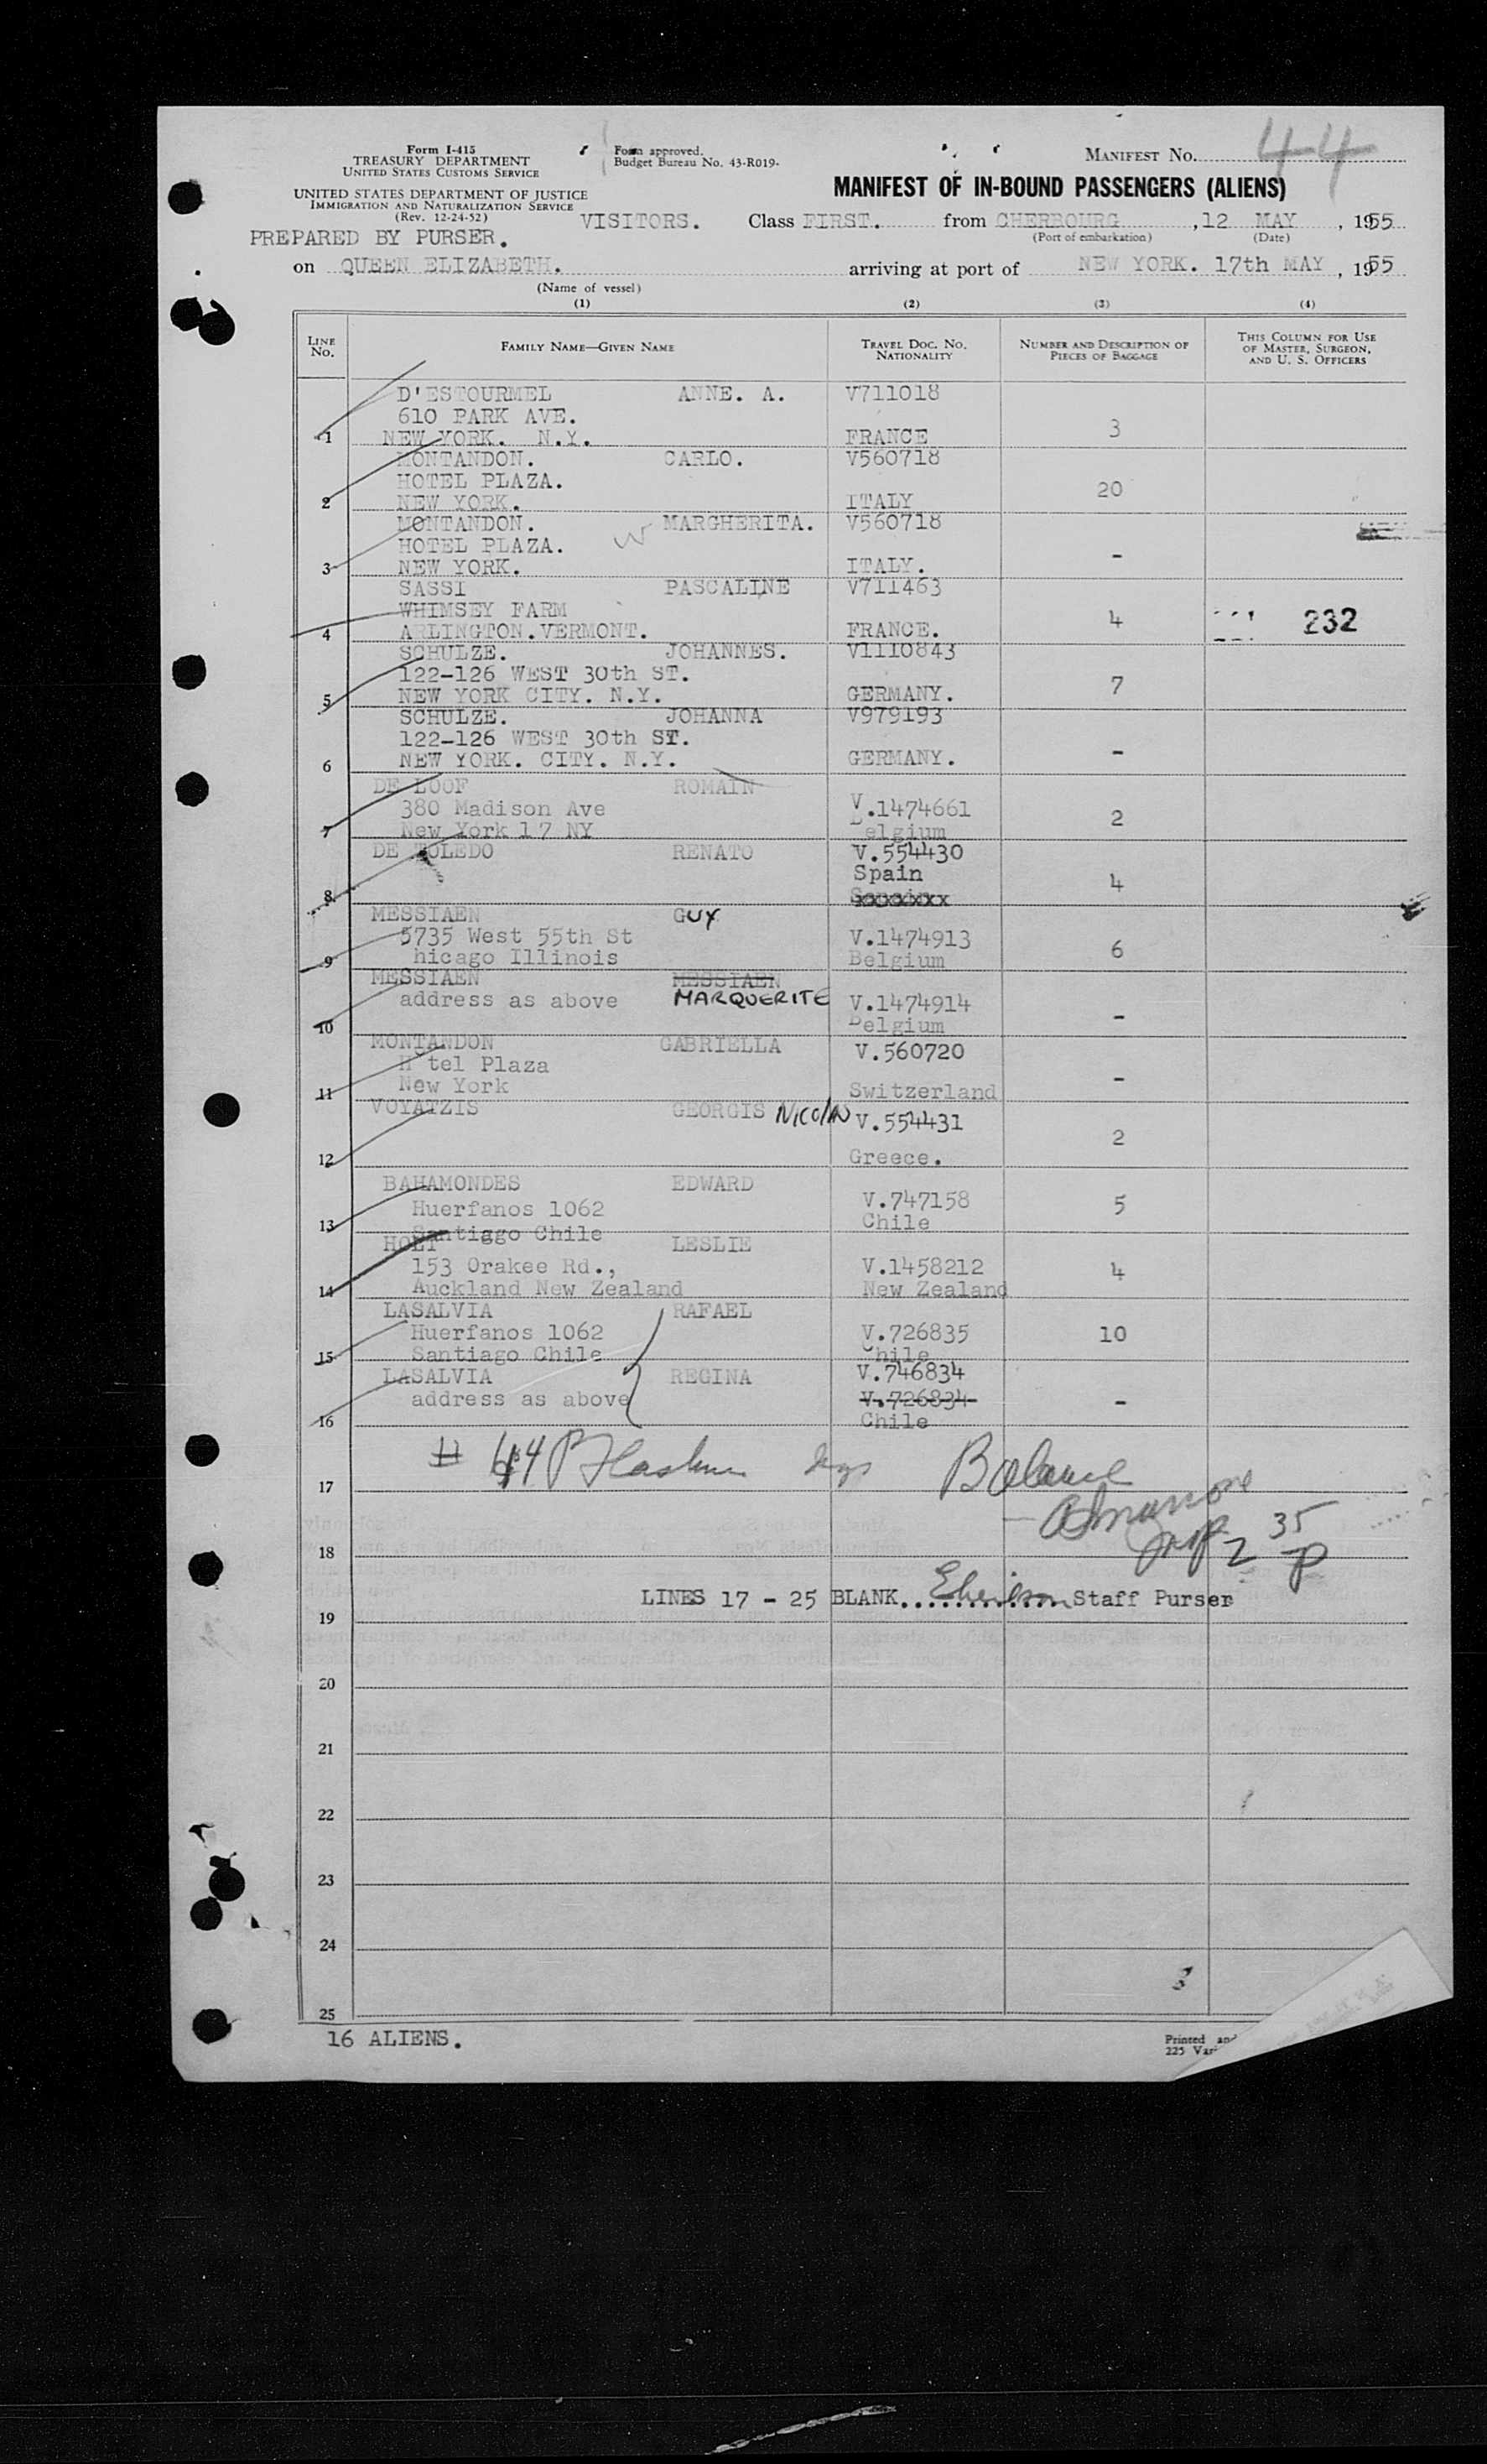 Form I-415
TREASURY DEPARTMENT
UNITED STATES CUSTOMS SERVICE
UNITED STATES DEPARTMENT OF JUSTICE
IMMIGRATION AND NATURALIZATION SERVICE
(Rev. 12-24-52)
Form approved.
Budget Bureau No. 43-R019-
MANIFEST NO. 44
MANIFEST OF IN-BOUND PASSENGERS (ALIENS)
PREPARED BY PURSER. VISITORS. Class FIRST. from CHERBOURG, 12 MAY, 1955
(Port of embarkation) (Date)
on QUEEN ELIZABETH. arriving at port of NEW YORK. 17th MAY, 1955
(Name of vessel)
(1) (2) (3) (4)
LINE NO. FAMILY NAME—GIVEN NAME TRAVEL DOC. NO. NATIONALITY NUMBER AND DESCRIPTION OF PIECES OF BAGGAGE THIS COLUMN FOR USE OF MASTER, SURGEON, AND U. S. OFFICERS
D'ESTOURMEL ANNE. A. V711018
610 PARK AVE.
1 NEW YORK. N.Y. FRANCE 3
MONTANDON. CARLO. V560718
HOTEL PLAZA. 20
2 NEW YORK. ITALY
MONTANDON. MARGHERITA. V560718
HOTEL PLAZA. -
3 NEW YORK. ITALY.
SASSI PASCALINE V711463
WHIMSEY FARM 4 232
4 ARLINGTON.VERMONT. FRANCE.
SCHULZE. JOHANNES. V1110843
122-126 WEST 30th ST. 7
5 NEW YORK CITY. N.Y. GERMANY.
SCHULZE. JOHANNA V979193
122-126 WEST 30th ST. -
6 NEW YORK. CITY. N.Y. GERMANY.
DE LOOF ROMAIN
380 Madison Ave V.1474661 2
7 New York 17 NY elgium
DE TOLEDO RENATO V.554430
Spain 4
8
MESSIAEN GUY
5735 West 55th St V.1474913 6
9 hicago Illinois Belgium
MESSIAEN MESSIAEN
address as above MARQUERITE V.1474914 -
10 Belgium
MONTANDON GABRIELLA V.560720
H tel Plaza -
11 New York Switzerland
VOYATZIS GEORGIS V.554431
2
12 Greece.
BAHAMONDES EDWARD
Huerfanos 1062 V.747158 5
13 Santiago Chile Chile
HOLT LESLIE
153 Orakee Rd., V.1458212 4
14 Auckland New Zealand New Zealand
LASALVIA RAFAEL
Huerfanos 1062 V.726835 10
15 Santiago Chile Chile
LASALVIA REGINA V.746834
address as above V.726834 -
16 Chile
Balance
17
18
LINES 17 - 25 BLANK. Staff Purser
19
20
21
22
23
24
25
16 ALIENS.
Printed
225